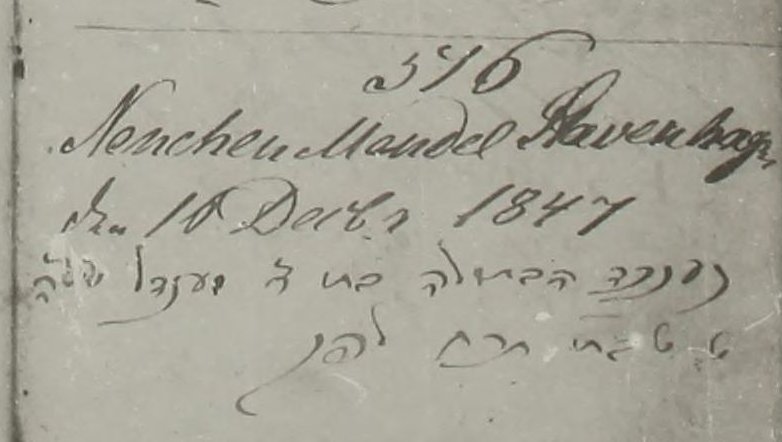 376
Nenchen Mandel Stavenhagn
den 16 Decbr 1847
הבתולה בת ר מענדל
ט טבת תרח לפק